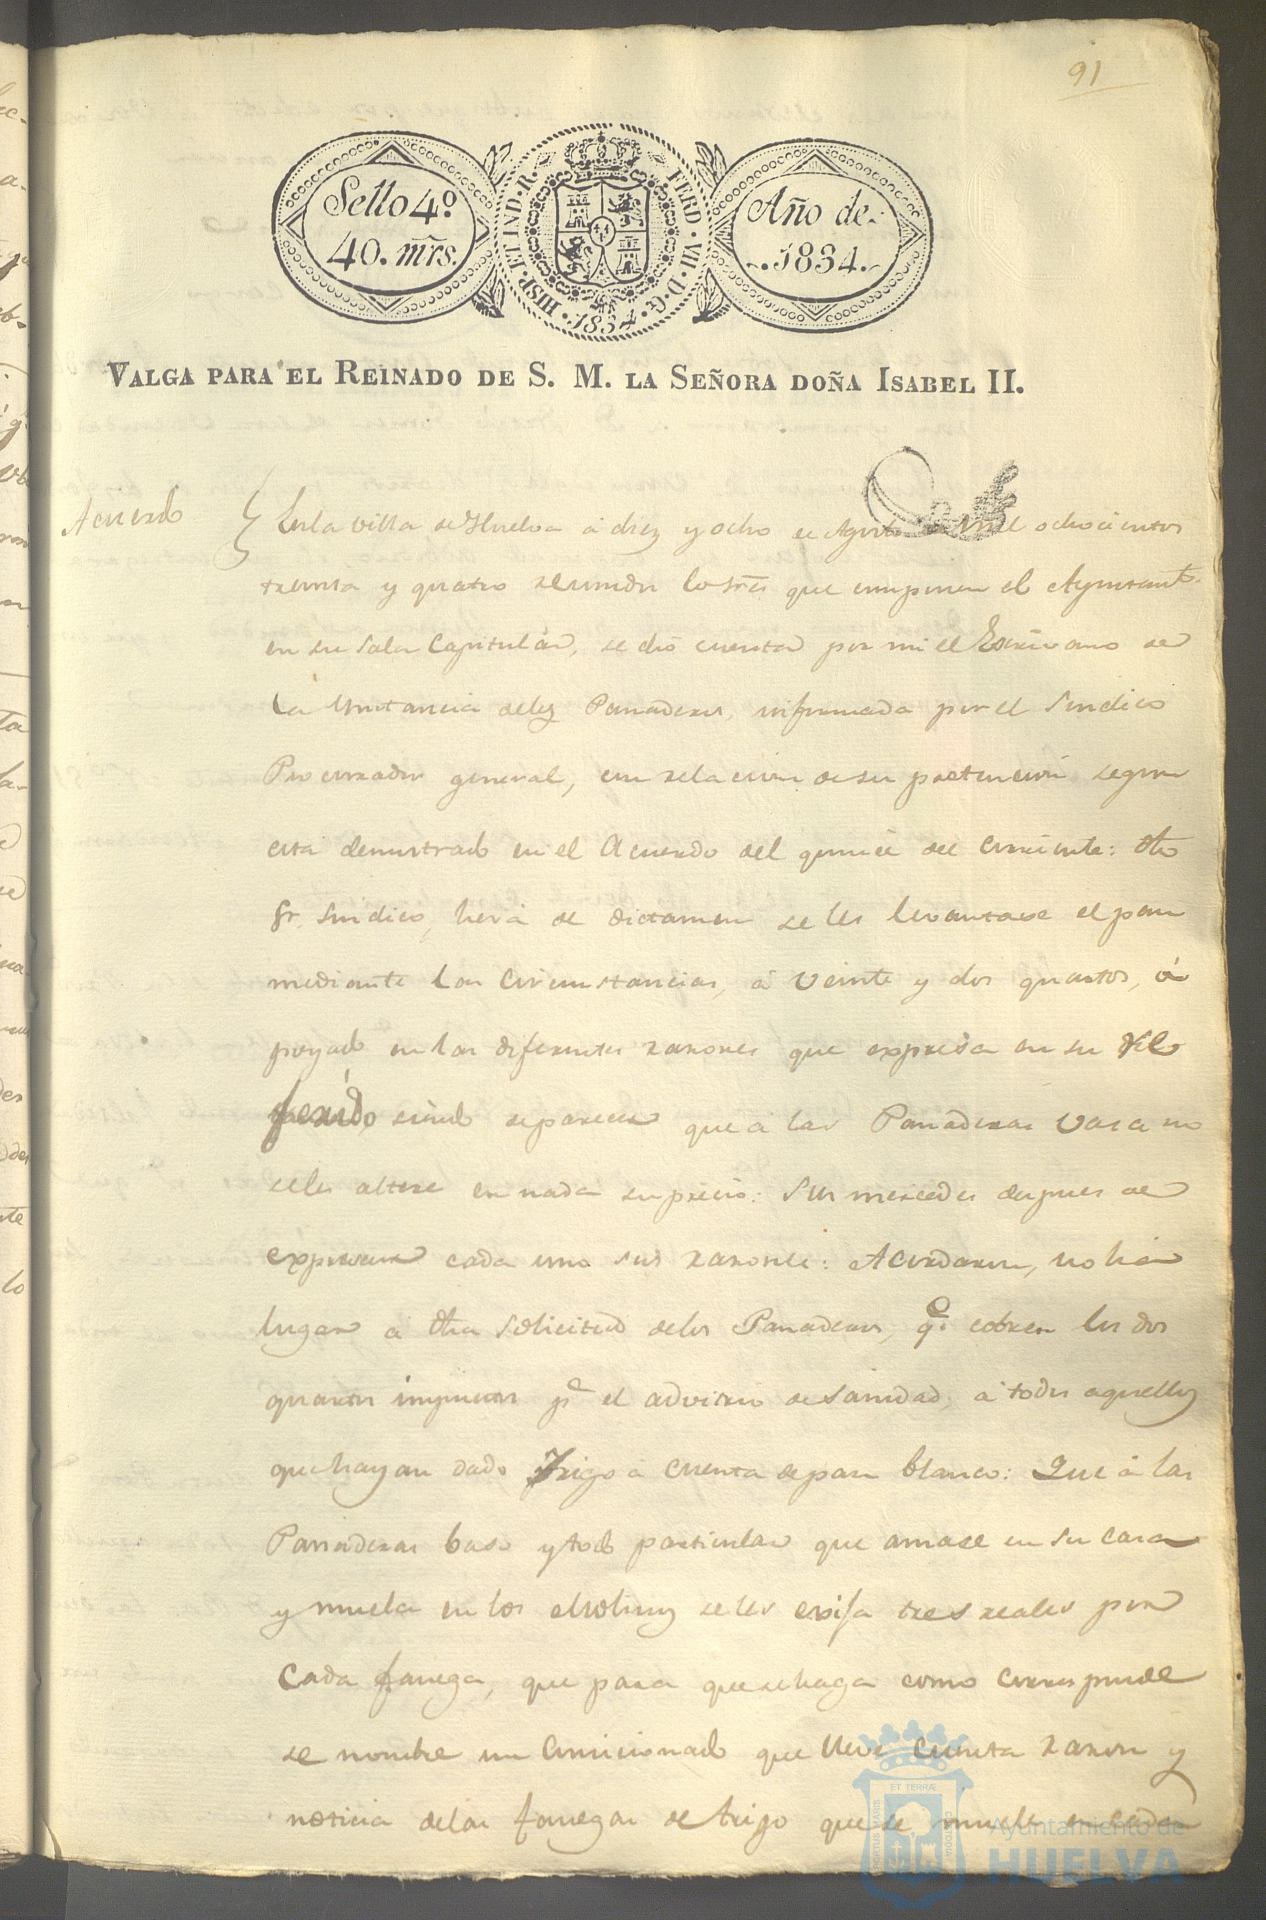 91
Sello 4º
40. mrs.
HISP. ET IND. R. FERD. VII. D. G. 1834.
Año de
1834.
VALGA PARA EL REINADO DE S. M. LA SEÑORA DOÑA ISABEL II.
Acuerdo
En la villa de Huelva à diez y ocho de Agosto de mil ochocientos
treinta y quatro reunidos los Sres que componen el Ayuntamto.
en su Sala Capitular, se dió cuenta por mi el Escrivano de
la Instancia delos Panaderos, informada por el Sindico
Procurador general, con relacion de su pretencion segun
está demostrado en el Acuerdo del quince del corriente: dho
Sr. Sindico, herá de dictamen se les levantase el pan
mediante las circunstancias, à veinte y dos quartos, à
poyado en las diferentes razones que expresa en su
ferido, siendo de parecer que à las Panaderas vasa no
seles altere en nada su precio: Sus mercedes despues de
expresar cada uno sus razones: Acordaron, no há
lugar à dha Solicitud delos Panaderos, qe. cobren los dos
quartos impuestos pa. el advitrio de Sanidad, à todos aquellos
que hayan dado Trigo à cuenta de pan blanco: Que à las
Panaderas baso y todo particular que amase en su casa
y muela en los Molinos se les exija tres reales por
cada fanega, que para que se haga como corresponde
se nombre un Comicionado que lleve cuenta razon y
noticia delas fanegas de trigo que se muele en cada
ET TERRÆ
PORTUS MARIS
CUSTODIA
Ayuntamiento de
HUELVA